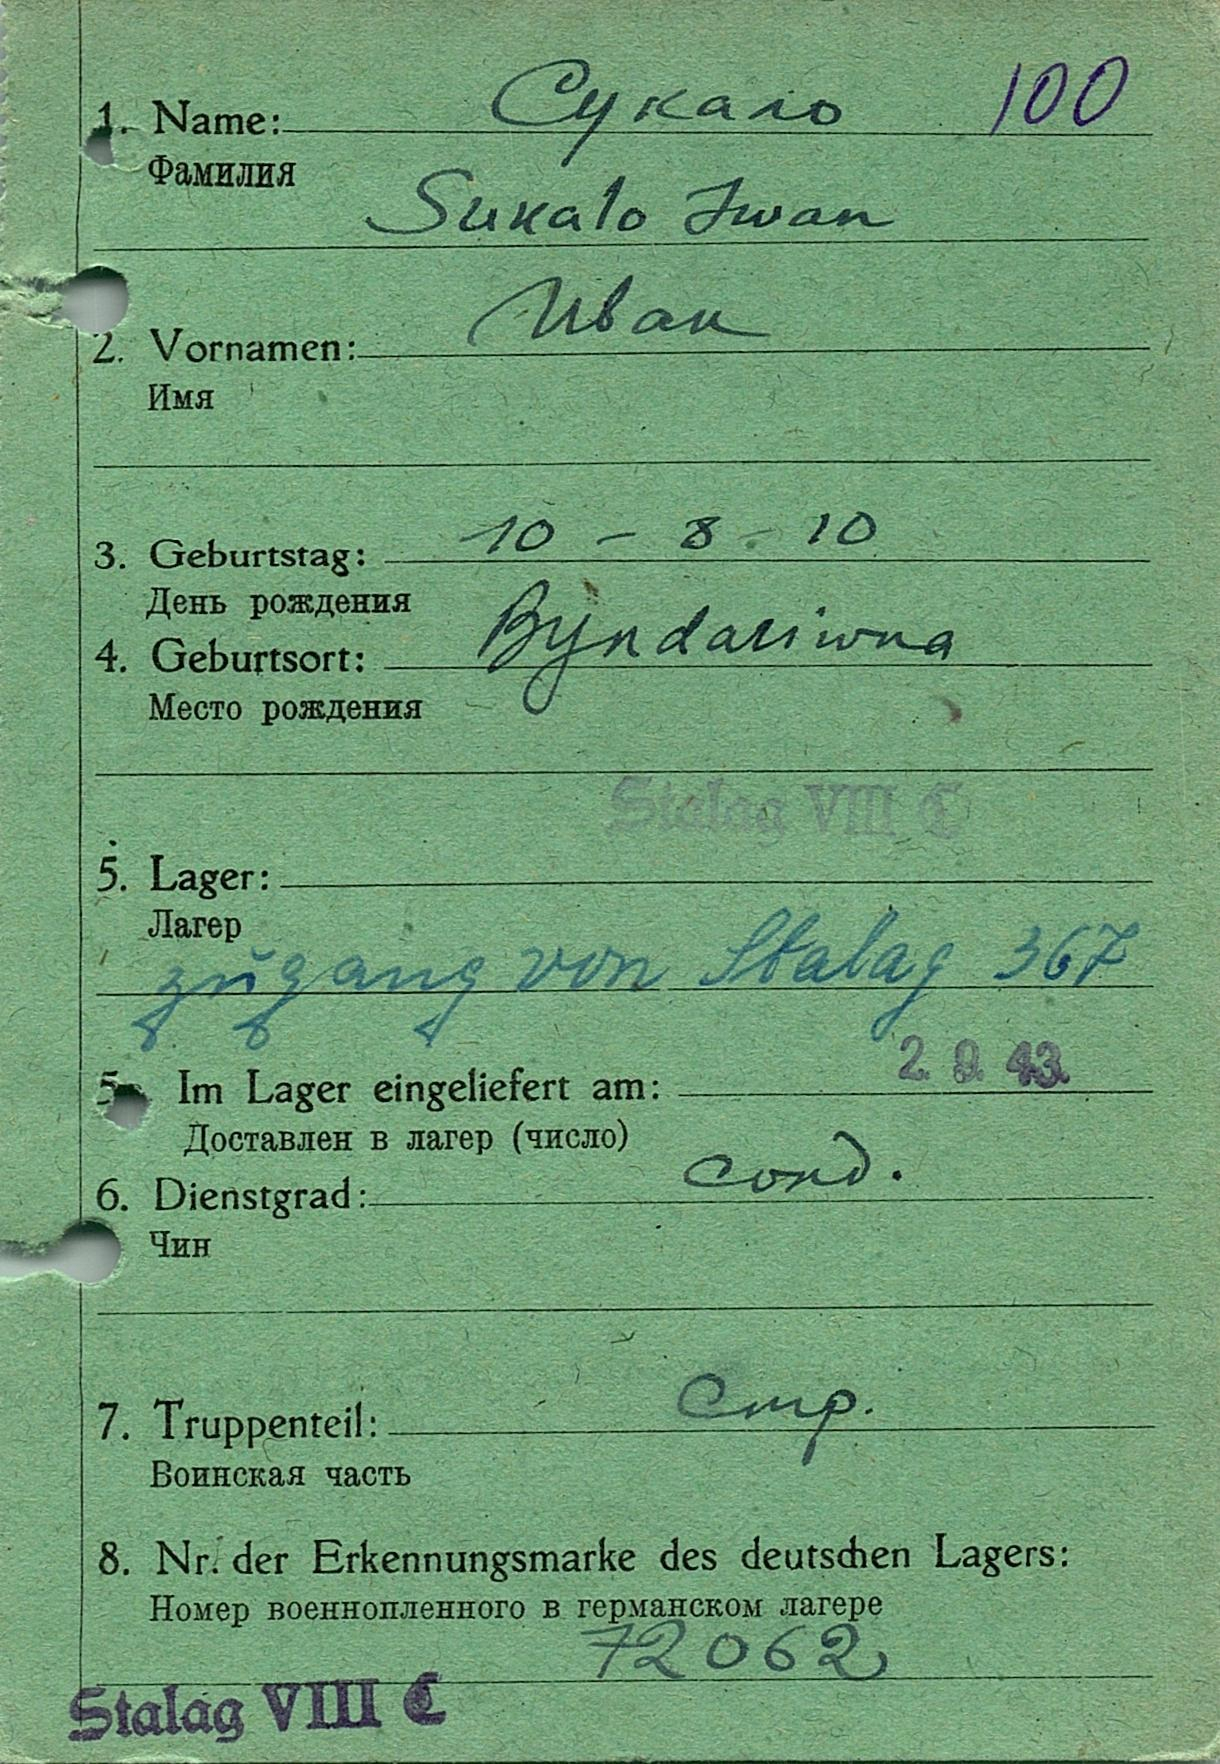 1. Name: Сукало 100
Фамилия
Sukalo Iwan
2. Vornamen: Иван
Имя
3. Geburtstag: 10 - 8 - 10
День рождения
4. Geburtsort:
Место рождения
Stalag VIII C
5. Lager:
Лагер
zugang von Stalag 367
5a Im Lager eingeliefert am: 2. 9. 43.
Доставлен в лагер (число)
6. Dienstgrad: солд.
Чин
7. Truppenteil: Стр.
Воинская часть
8. Nr. der Erkennungsmarke des deutschen Lagers:
Номер военнопленного в германском лагере
72062
Stalag VIII C